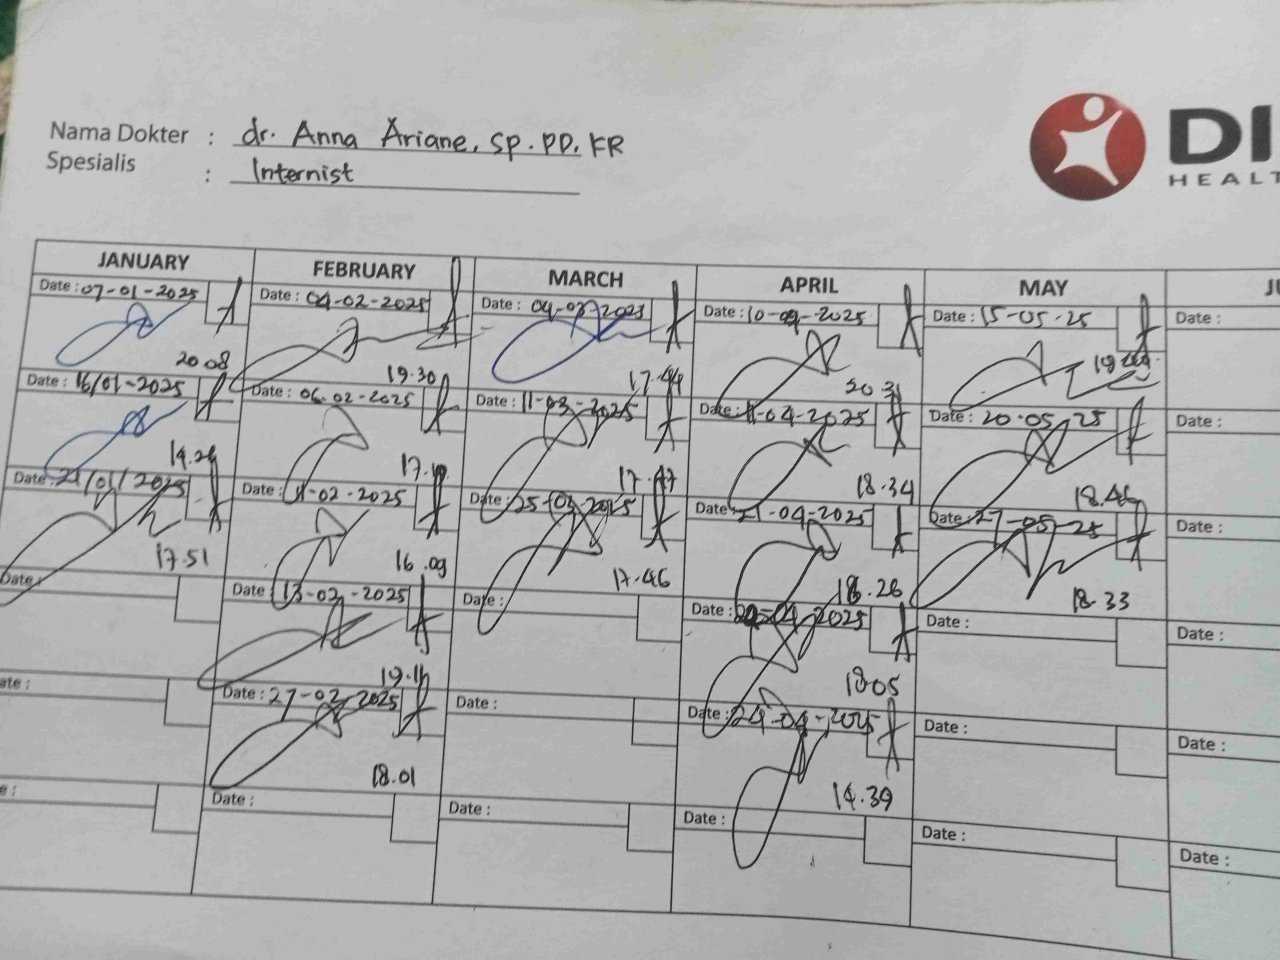 Nama Dokter : dr. Anna Ariane, Sp.PD, KR
Spesialis : Internist
DI
HEALT
JANUARY FEBRUARY MARCH APRIL MAY JU
Date : 07-01-2025 Date : 04-02-2025 Date : 04-03-2025 Date : 10-04-2025 Date : 15-05-25 Date :
20.08 19.30 17.44 20.31
Date : 16/01-2025 Date : 06-02-2025 Date : 11-03-2025 Date : 11-04-2025 Date : 20-05-25 Date :
17.47 18.34 18.46
Date : 21/01/2025 Date : 11-02-2025 Date : 25-03-2025 Date : 21-04-2025 Date : 27-05-25 Date :
17.51 16.09 17.46 18.26 18.33
Date : Date : 13-02-2025 Date : Date : -04-2025 Date : Date :
19.11 18.05
ate : Date : 27-02-2025 Date : Date : 24-04-2025 Date : Date :
18.01 14.39
e : Date : Date : Date : Date : Date :